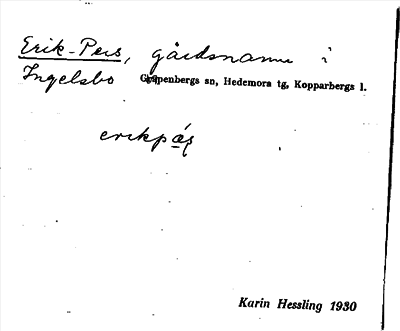 Erik-Pers, gårdsnamn i
Ingelsbo Garpenbergs sn, Hedemora tg, Kopparbergs l.
Karin Hessling 1930